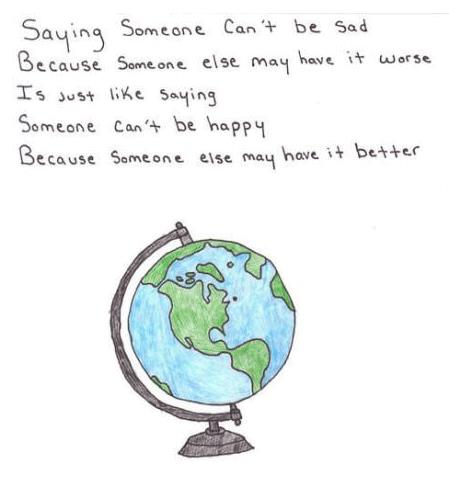 Saying Someone Can't be Sad
Because Someone else may have it worse
Is Just like saying
Someone Can't be happy
Because Someone else may have it better